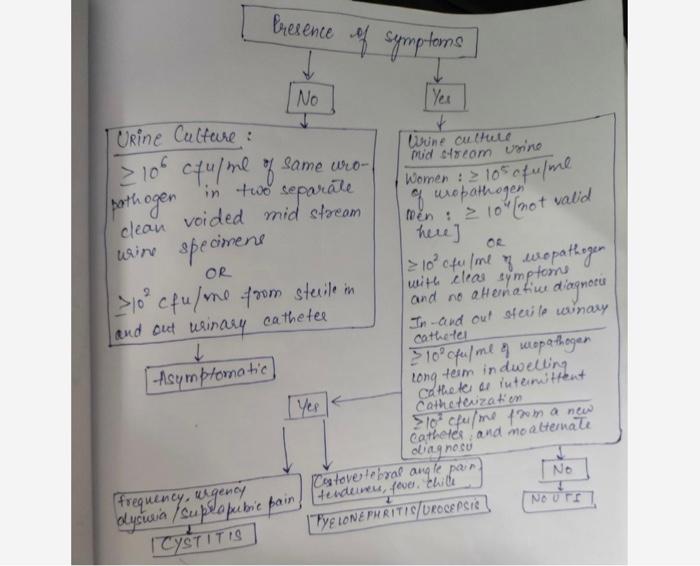 Presence of symptoms
No
Yes
URine Culture :
≥ 10⁶ cfu/ml of same uro-
pathogen in two separate
clean voided mid stream
urine specimens
OR
≥10² cfu/ml from sterile in
and out urinary catheter
Asymptomatic
Urine culture
mid stream urine
Women : ≥ 10⁵ cfu/ml
of uropathogen
Men : ≥ 10⁴ [not valid
here]
OR
≥10² cfu/ml of uropathogen
with clear symptoms
and no alternative diagnosis
In-and out sterile urinary
catheter
≥10² cfu/ml of uropathogen
long term indwelling
catheter or intermittent
catheterization
≥10² cfu/ml from a new
catheter, and no alternate
diagnosis
Yes
No
NO UTI
frequency, urgency
dysuria / suprapubic pain
CYSTITIS
Costovertebral angle pain,
tenderness, fever, chills
PYELONEPHRITIS/UROSEPSIS